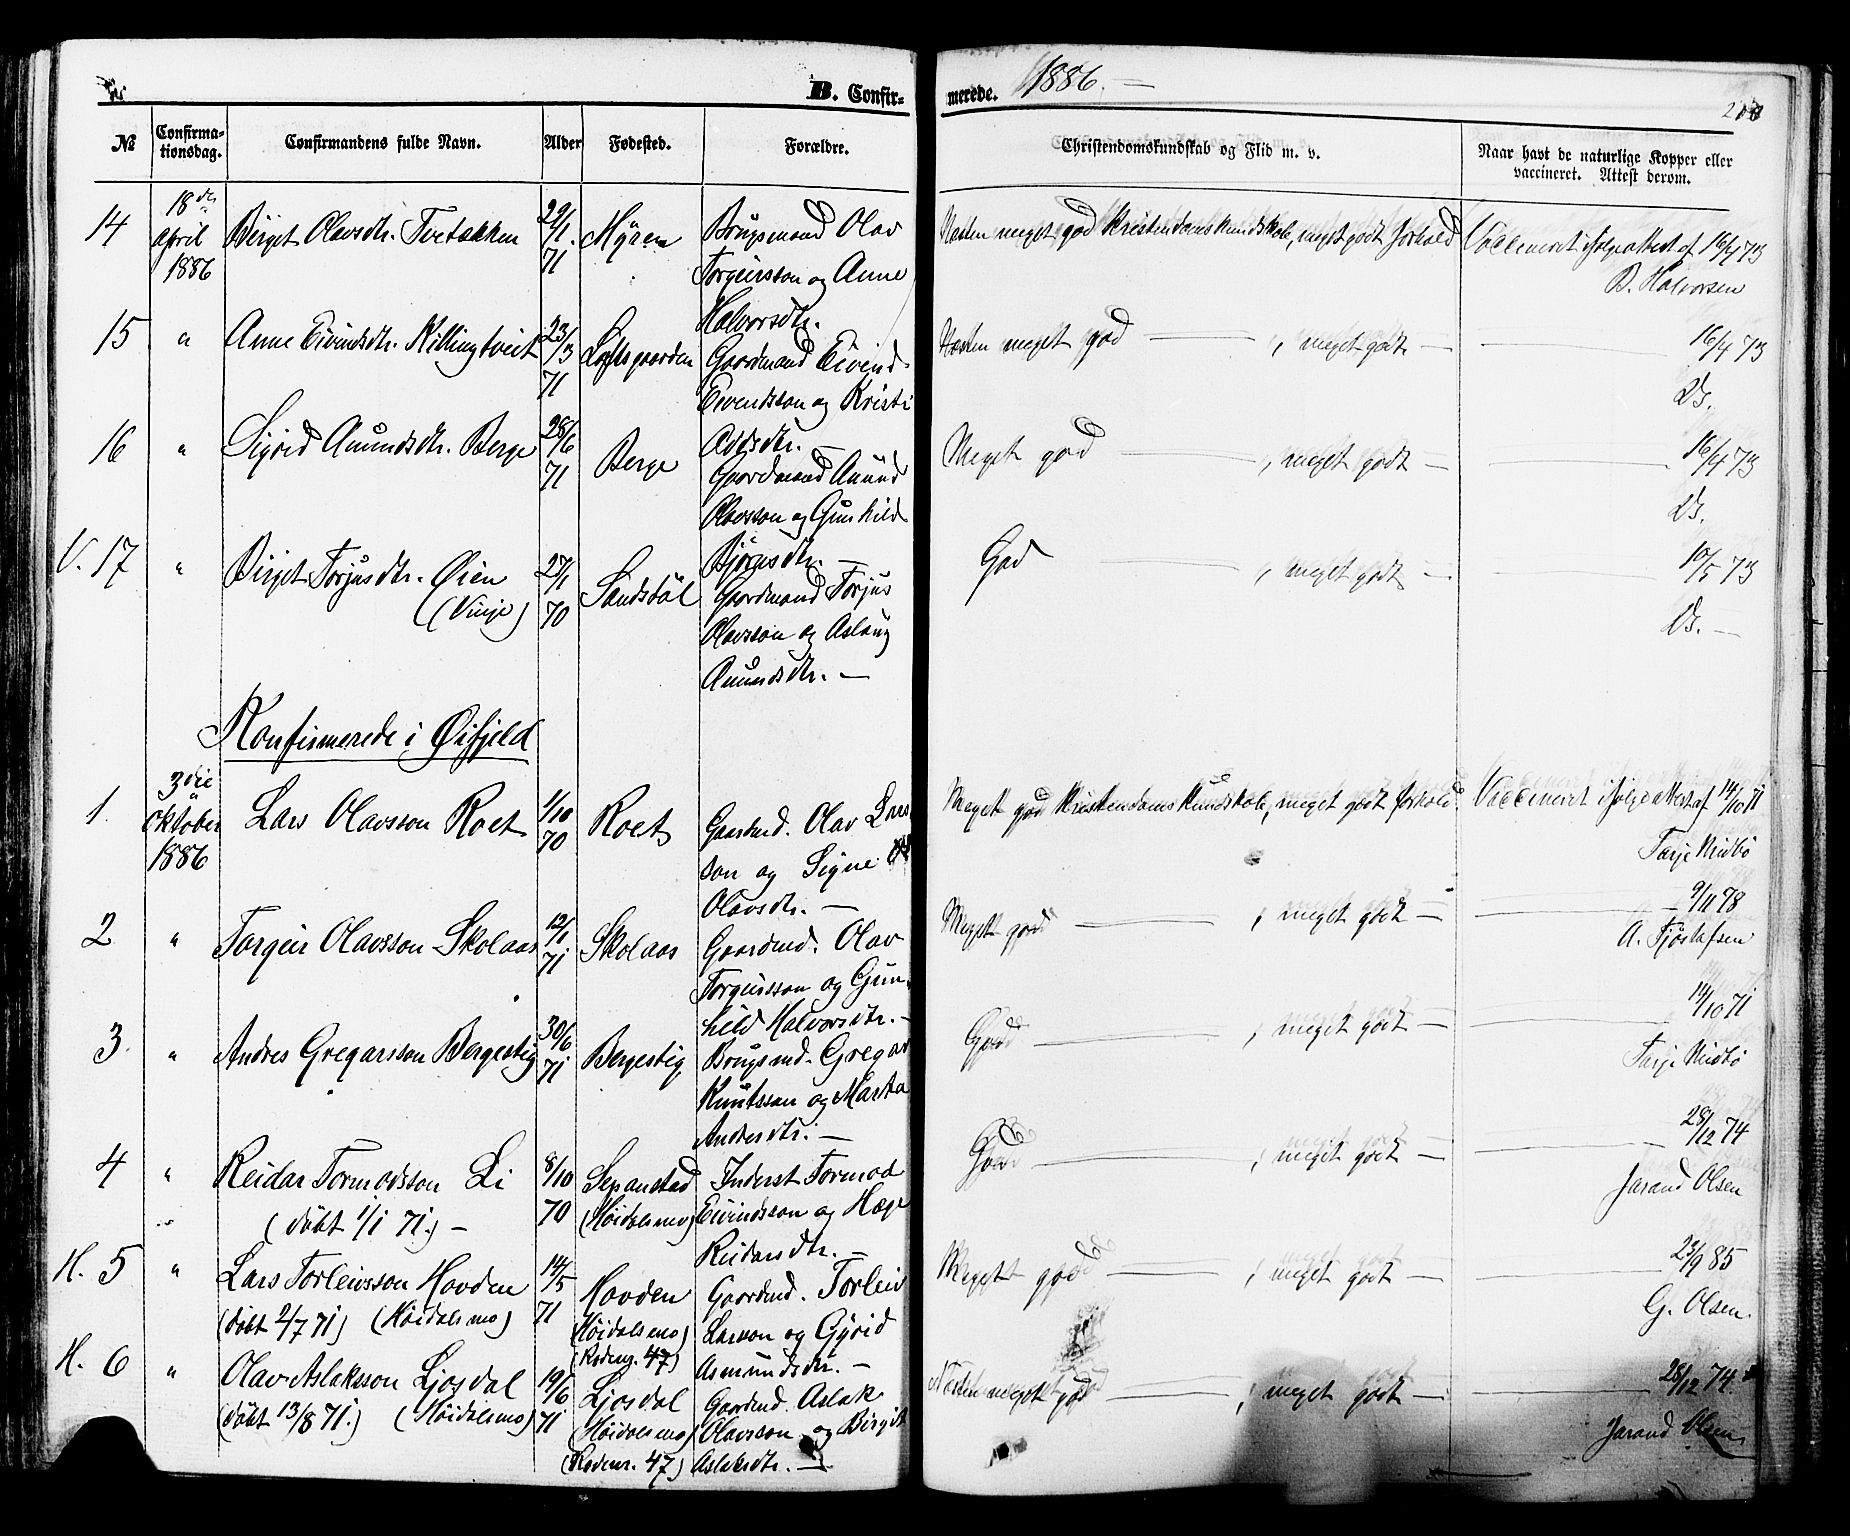 B. Confir-
merede. 1886. —
№
Confirma-
tionsdag.
Confirmandens fulde Navn.
Alder
Fødested.
Forældre.
Christendomskundskab og Flid m. v.
Naar havt de naturlige Kopper eller
vaccineret. Attest derom.
14
18de
April
1886
Birget Olavsdtr. Tvetækken
29/1.
71
Myren
Brugsmand Olav
Torgeirsson og Anne
Halvorsdtr.
Næsten meget god Kristendomskundskab, meget godt Forhold
Vaccineret ifølge Attest af 16/4 73
B. Halvorsen
15
"
Anne Eivindsdtr. Killingtveit
23/3
71
Loftsgaarden
Gaardmand Eivind
Eivendsson og Kristi
Oddsdtr. —
Næsten meget god — , meget godt —
— 16/4 73
Ds.
16
"
Sigrid Aanundsdtr. Berge
28/6
71
Berge
Gaardmand Anund
Olavsson og Gunhild
Bjørnsdtr. —
Meget god — , meget godt —
— 16/4 73
Ds.
V. 17
"
Birget Torjusdtr. Øien
(Vinje)
27/1
70
Sandsdöl
Gaardmand Torjus
Olavsson og Aslaug
Aanundsdtr. —
God — , meget godt —
— 10/5 73
Ds. —
Konfirmerede i Øifjeld
1.
3die
Oktober
1886
Lars Olavsson Roet
1/10
70
Roet
Gaardmd. Olav Lars
son og Signe
Olavsdtr. —
Meget god Kristendomskundskab, meget godt Forhold.
Vaccineret ifølge Attest af 14/10 71
Tarje Midbö
2
"
Torgeir Olavsson Skolaas
12/1
71
Skolaas
Gaardmd. Olav
Torgeirsson og Gun-
hild Halvorsdtr. —
Meget god — , meget godt —
— 9/11 78
A. Tjöstafsen
3.
"
Andres Gregarsson Bergestig
30/6
71
Bergestig
Brugsmd. Gregar
Knutsson og Marta
Andersdtr. —
God — , meget godt —
— 14/10 71
Tarje Midbö
4
"
Reidar Tormodsson Li
(döbt 1/1 71.) —
8/10
70
(Höidalsmo)
Inderst Tormod
Eivindsson og Hæge
Reidarsdtr. —
God — , meget godt —
— 28/12 74
Jarand Olsen
H. 5
"
Lars Torleivsson Hovden
(döbt 2/7 71) (Höidalsmo)
14/5
71
Hovden
(Höidalsmo)
(Rodenr. 47)
Gaardmd. Torleiv
Larsson og Gyrid
Asmundsdtr. —
Meget god — , meget godt —
— 23/9 85
G. Olsen.
H. 6
"
Olav Aslaksson Ljosdal
(döbt 13/8 71.) (Höidalsmo)
19/6
71
Ljosdal
(Höidalsmo)
(Rodenr. 47)
Gaardmd. Aslak
Olavsson og Birgit
Aslaksdtr. —
Næsten meget god — , meget godt —
— 28/12 74
Jarand Olsen